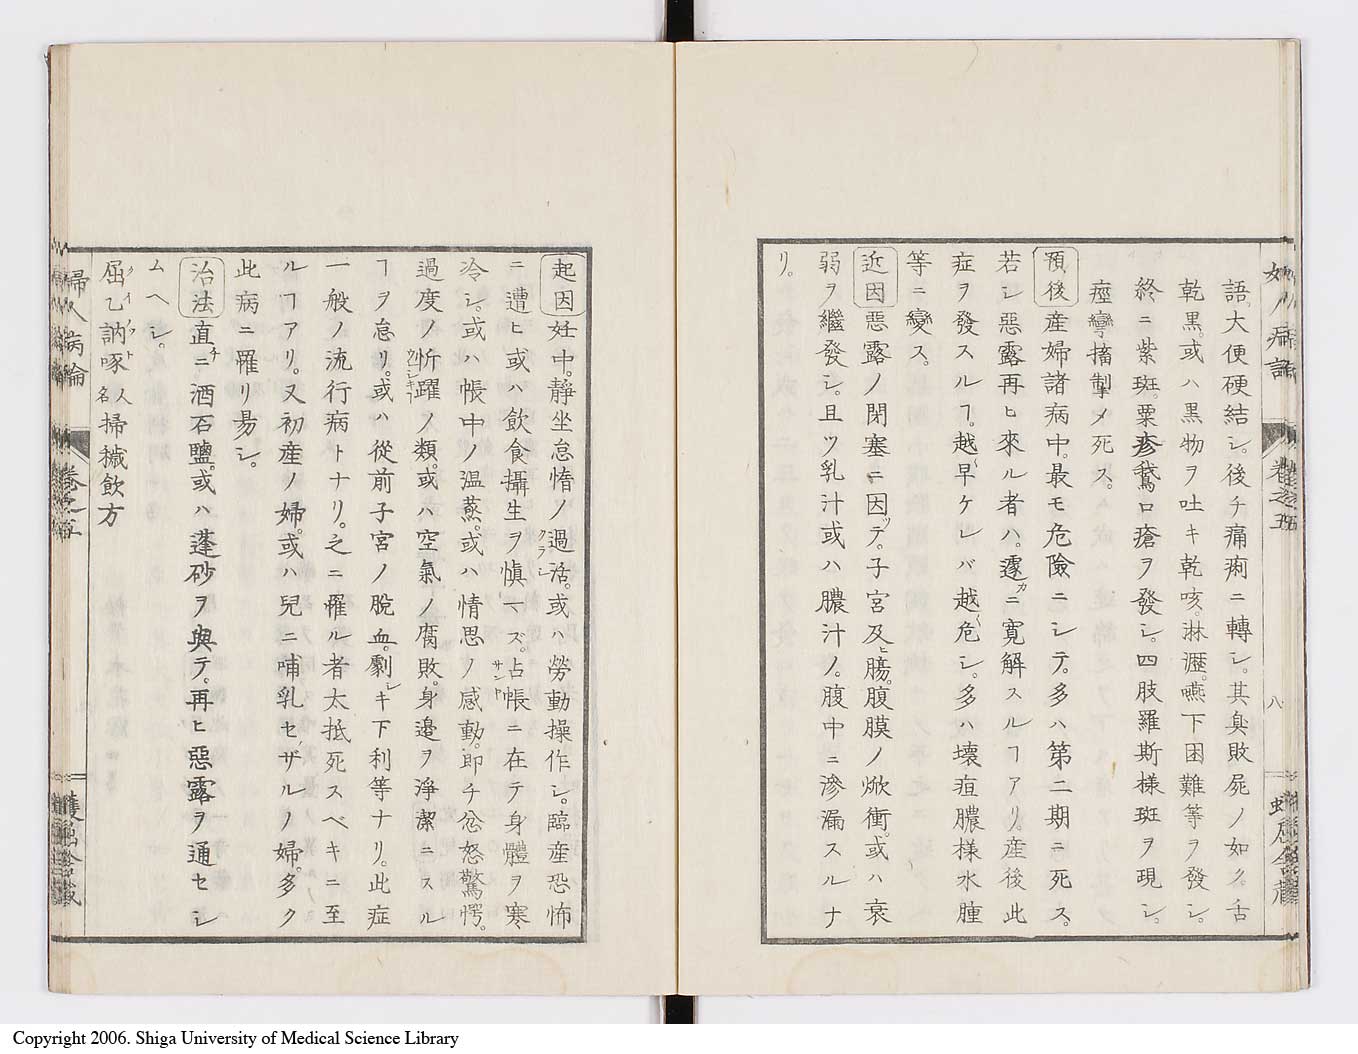 語。大便硬結シ。後チ痛痢ニ轉シ。其臭敗屍ノ如ク。舌
乾黒。或ハ黒物ヲ吐キ乾咳。淋瀝。嚥下困難等ヲ發シ。
終ニ紫斑。粟疹鵞口瘡ヲ發シ。四肢羅斯様斑ヲ現シ。
痙攣搐掣〆死ス。
預後 産婦諸病中。最モ危險ニシテ。多ハ第二期ニ死ス。
若シ惡露再ヒ來ル者ハ。遽カニ寛解スルヿアリ。産後此
症ヲ發スルヿ。越〻早ケレバ越〻危シ。多ハ壊疽膿様水腫
等ニ變ス。
近因 惡露ノ閉塞ニ因ッテ。子宮及ヒ腸。腹膜ノ焮衝。或ハ衰
弱ヲ繼發シ。且ツ乳汁或ハ膿汁ノ。腹中ニ滲漏スルナ
リ。
八
起因 妊中。静坐怠惰ノ過活。或ハ勞動操作シ。臨産恐怖
クラシ
ニ遭ヒ或ハ飲食攝生ヲ愼マズ。占帳ニ在テ身體ヲ寒
サント
冷シ。或ハ帳中ノ温蒸。或ハ情思ノ感動。即チ忿怒驚愕。
過度ノ忻躍ノ類。或ハ空氣ノ腐敗。身邉ヲ浄潔ニスル
ヿヲ怠リ。或ハ從前子宮ノ脱血。劇シキ下利等ナリ。此症
一般ノ流行病トナリ。之ニ罹ル者太抵死スベキニ至
ルヿアリ。又初産ノ婦。或ハ兒ニ哺乳セザルノ婦。多ク
此病ニ罹リ昜シ。
治法 直チニ酒石鹽。或ハ蓬砂ヲ與テ。再ヒ惡露ヲ通セシ
ムヘシ。
屈乙訥啄人名掃穢飲方
クイット
婦人病論 巻之五
Copyright 2006. Shiga University of Medical Science Library